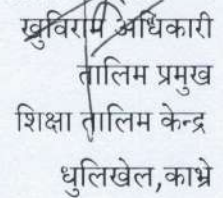 खुविराम अधिकारी
तालिम प्रमुख
शिक्षा तालिम केन्द्र
धुलिखेल,काभ्रे